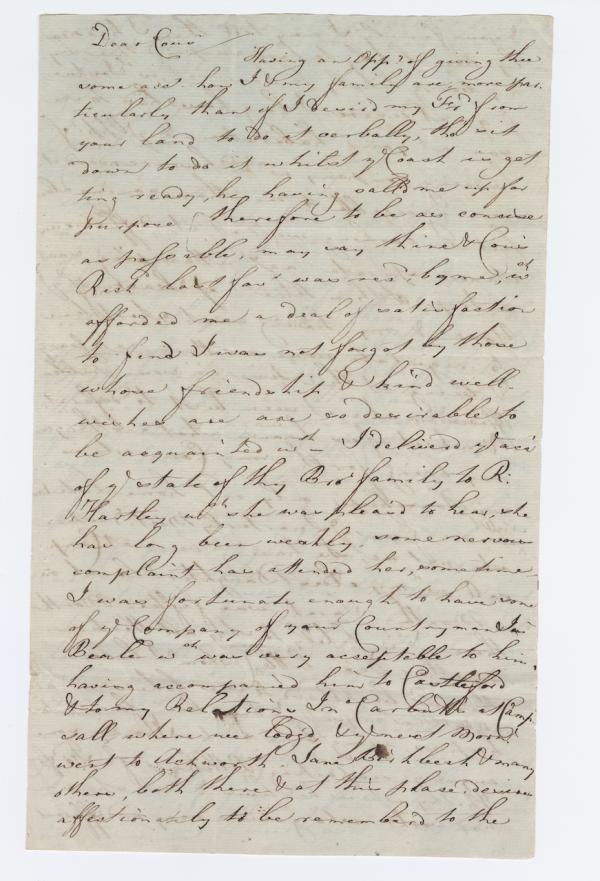 Dear Cous.
Having an Opp.y of giving thee
some acc. how I & my family are, more par-
ticularly than if I desired my Fr.d from
your land to do it verbally, tho sit
down to do it whilst y.e Coast is get
ting ready, he having call'd me up for
purpose therefore to be as concise
as possible, may say thine & Cous.
Rich.ds last fav.r was rec.d by me, w.ch
afforded me a deal of satisfaction
to find I was not forgot by those
whose friendship & kind well-
wishes are are so desirable to
be acquainted w.th - I deliverd y.e acc.t
of y.e state of thy Bro.s family to R:
Hartley w.ch she was pleasd to hear, she
has long been weakly, some nervous
complaint has attended her, sometime
I was fortunate enough to have some
of y.e Company of your Countryman
Beale w.ch was very acceptable to him,
having accompanied him to Castleford
& to my Relations Jn.o at Camp-
sall where we lodg'd, & y.e next Morn.g
went to Ackworth. Jane & many
others, both there & at this place, desires
affectionately to be rememberd to the